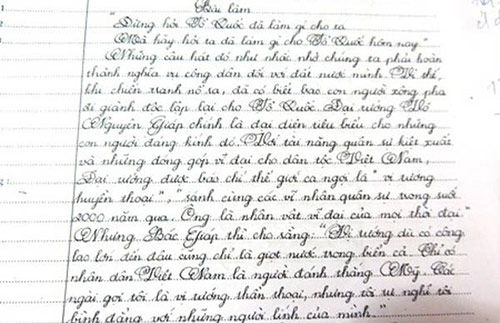 Bài làm
"Đừng hỏi Tổ Quốc đã làm gì cho ta
Mà hãy hỏi ta đã làm gì cho Tổ Quốc hôm nay"
Những câu hát đó như nhắc nhở chúng ta phải hoàn
thành nghĩa vụ công dân đối với đất nước mình. Vì thế,
khi chiến tranh nổ ra, đã có biết bao con người xông pha
đi giành độc lập lại cho Tổ Quốc. Đại tướng Võ
Nguyên Giáp chính là đại diện tiêu biểu cho những
con người đáng kính đó. Với tài năng quân sự kiệt xuất
và những đóng góp vĩ đại cho dân tộc Việt Nam,
Đại tướng được báo chí thế giới ca ngợi là "vị tướng
huyền thoại", "sánh cùng các vĩ nhân quân sự trong suốt
2000 năm qua. Ông là nhân vật vĩ đại của mọi thời đại."
Nhưng Bác Giáp thì cho rằng: "Vị tướng dù có công
lao lớn đến đâu cũng chỉ là giọt nước trong biển cả. Chỉ có
nhân dân Việt Nam là người đánh thắng Mỹ. Các
ngài gọi tôi là vị tướng thần thoại, nhưng tôi tự nghĩ tôi
bình đẳng với những người lính của mình."